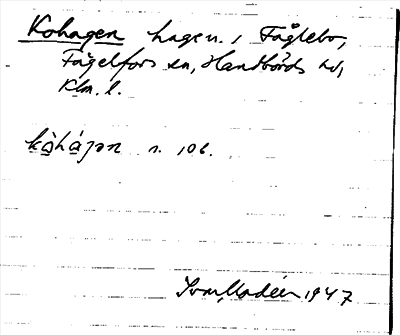 Kohagen hagen i Fåglebo,
Fågelfors sn, Handbörds hd,
Klm. l.
kòhágən n. 106.
Ivar Modéer 1947